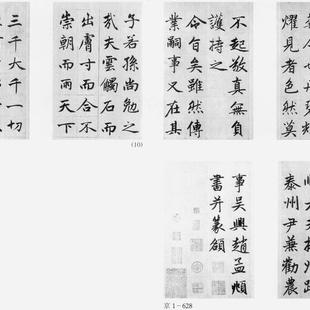 耀見者色然莫
不起敬真無負
護持之
令旨矣雖然傳
業嗣事又在其
子若孫尚勉之
哉夫雲觸石而
出膚寸而合不
崇朝而雨天下
三千大千一切
(10)
泰州尹兼勸農
事吳興趙孟頫
書并篆額
京1-628